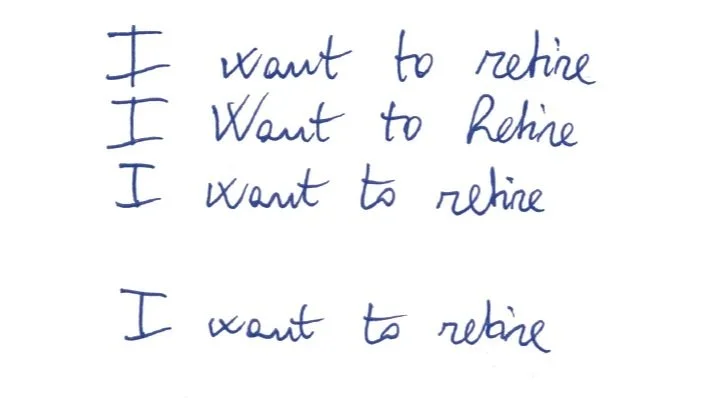 I want to retire
I Want to Retire
I want to retire
I want to retire